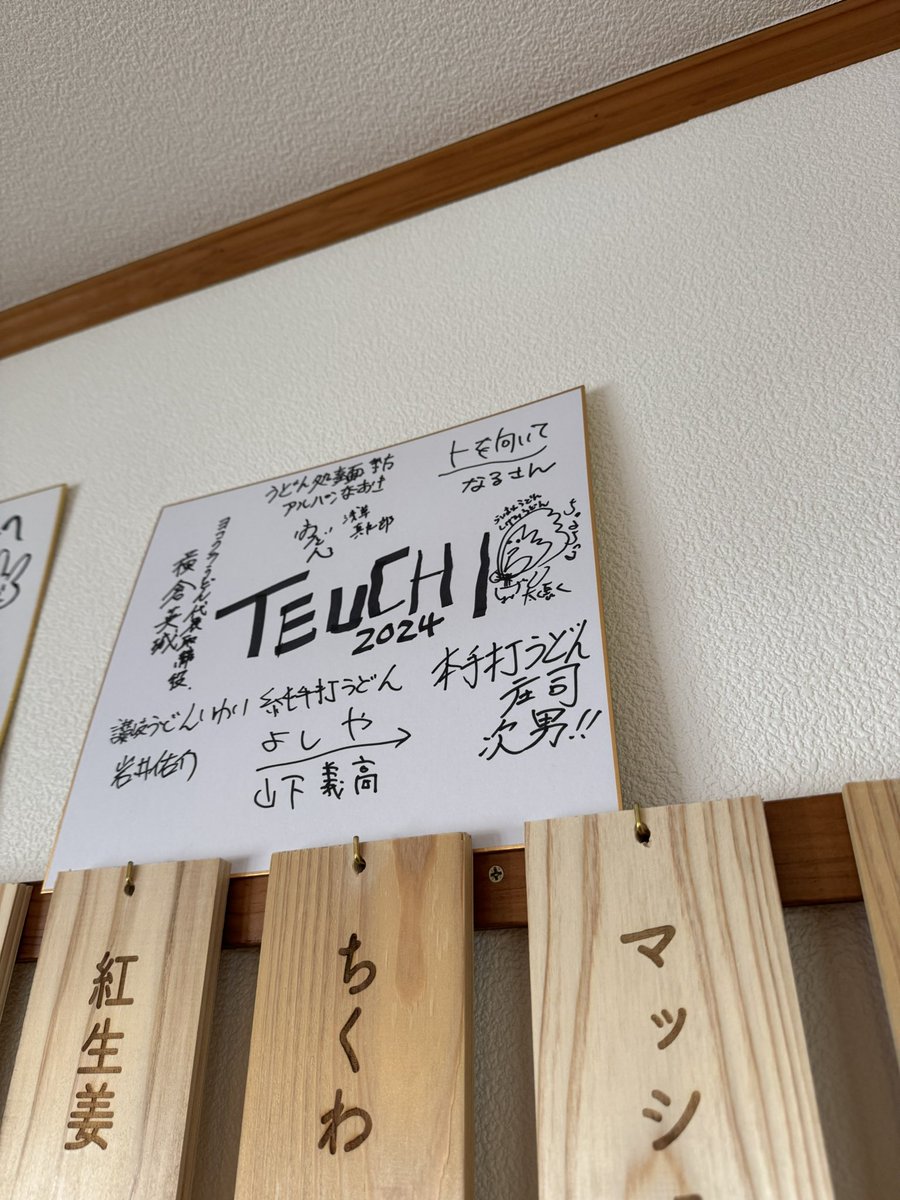 うどん処 麺坊
アルバンなおき
上を向いて
なるさん
浅草
うどん
ヨコクラうどん 代表取締役
横倉英城
TEUCHI
2024
本手打うどん
庄司
次男!!
讃岐うどんいわい
岩井佑乃
純手打うどん
よしや
山下義高
紅生姜
ちくわ
マッシ